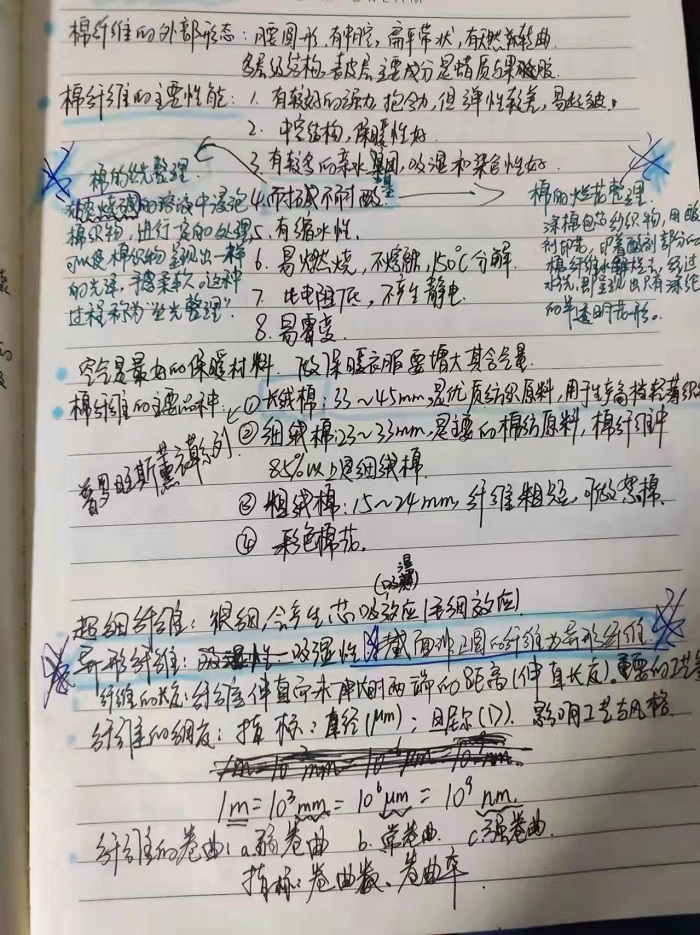 棉纤维的外部形态：腰圆形，有中腔，扁平带状，有天然转曲
多层级结构，表皮层主要成分是蜡质与果胶
棉纤维的主要性能：1. 有较好的强力，抱合力，但弹性较差，易起皱。
2. 中空结构，保暖性好
3. 有较多的亲水基团，吸湿和染色性好
4. 耐碱不耐酸
5. 有缩水性
6. 易燃烧，不熔融，150℃分解
7. 比电阻低，不产生静电
8. 易霉变
棉的丝光整理
的溶液中浸泡
棉织物，进行一定的处理，
可以使棉织物呈现出一种
的光泽，手感柔软。这种
过程称为“丝光整理”
棉的烂花整理
涤棉包芯纱织物，用酸
剂印花，即是酸剂部分的
棉纤维水解烂去，经过
水洗，即呈现出只有涤纶
的半透明花形。
空气是最好的保暖材料，做保暖衣服要增大其含气量
棉纤维的主要品种：①长绒棉：33～45mm，是优质纺织原料，用于生产高档轻薄织
②细绒棉：23～33mm，是主要的棉纺原料，棉纤维中
85%以上是细绒棉
普罗旺斯薰衣草系列
③ 粗绒棉：15～24mm，纤维粗短，可做絮棉
④ 彩色棉花
(吸湿)
超细纤维：很细，会产生芯吸效应(毛细效应)
异形纤维：吸湿性 截面非正圆的纤维为异形纤维
纤维的长度：纤维伸直而未伸长时两端的距离(伸直长度)。重要的工艺
纤维的细度：指标：直径(μm)；旦尼尔(D)。影响工艺与风格
1m=10³mm=10⁶μm=10⁹nm
纤维的卷曲：a.弱卷曲 b.常卷曲 c.强卷曲
指标：卷曲数、卷曲率